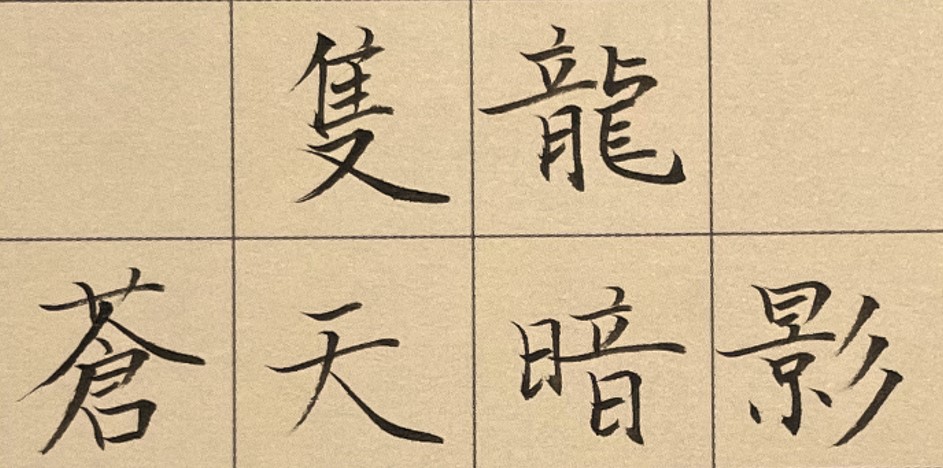 隻龍
蒼天暗影